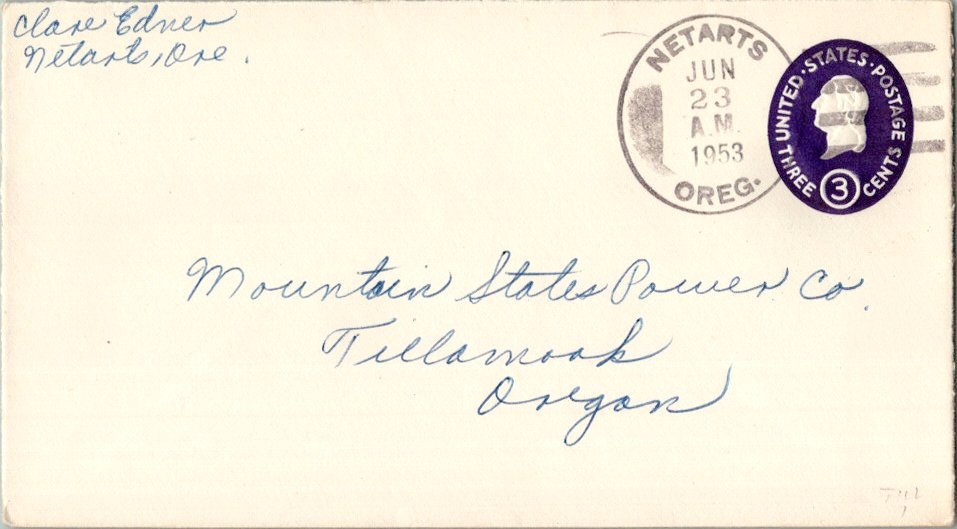 Clare Edner
Netarts, Ore.
NETARTS
JUN
23
A.M.
1953
OREG.
UNITED·STATES·POSTAGE
THREE 3 CENTS
Mountain States Power Co.
Tillamook
Oregon